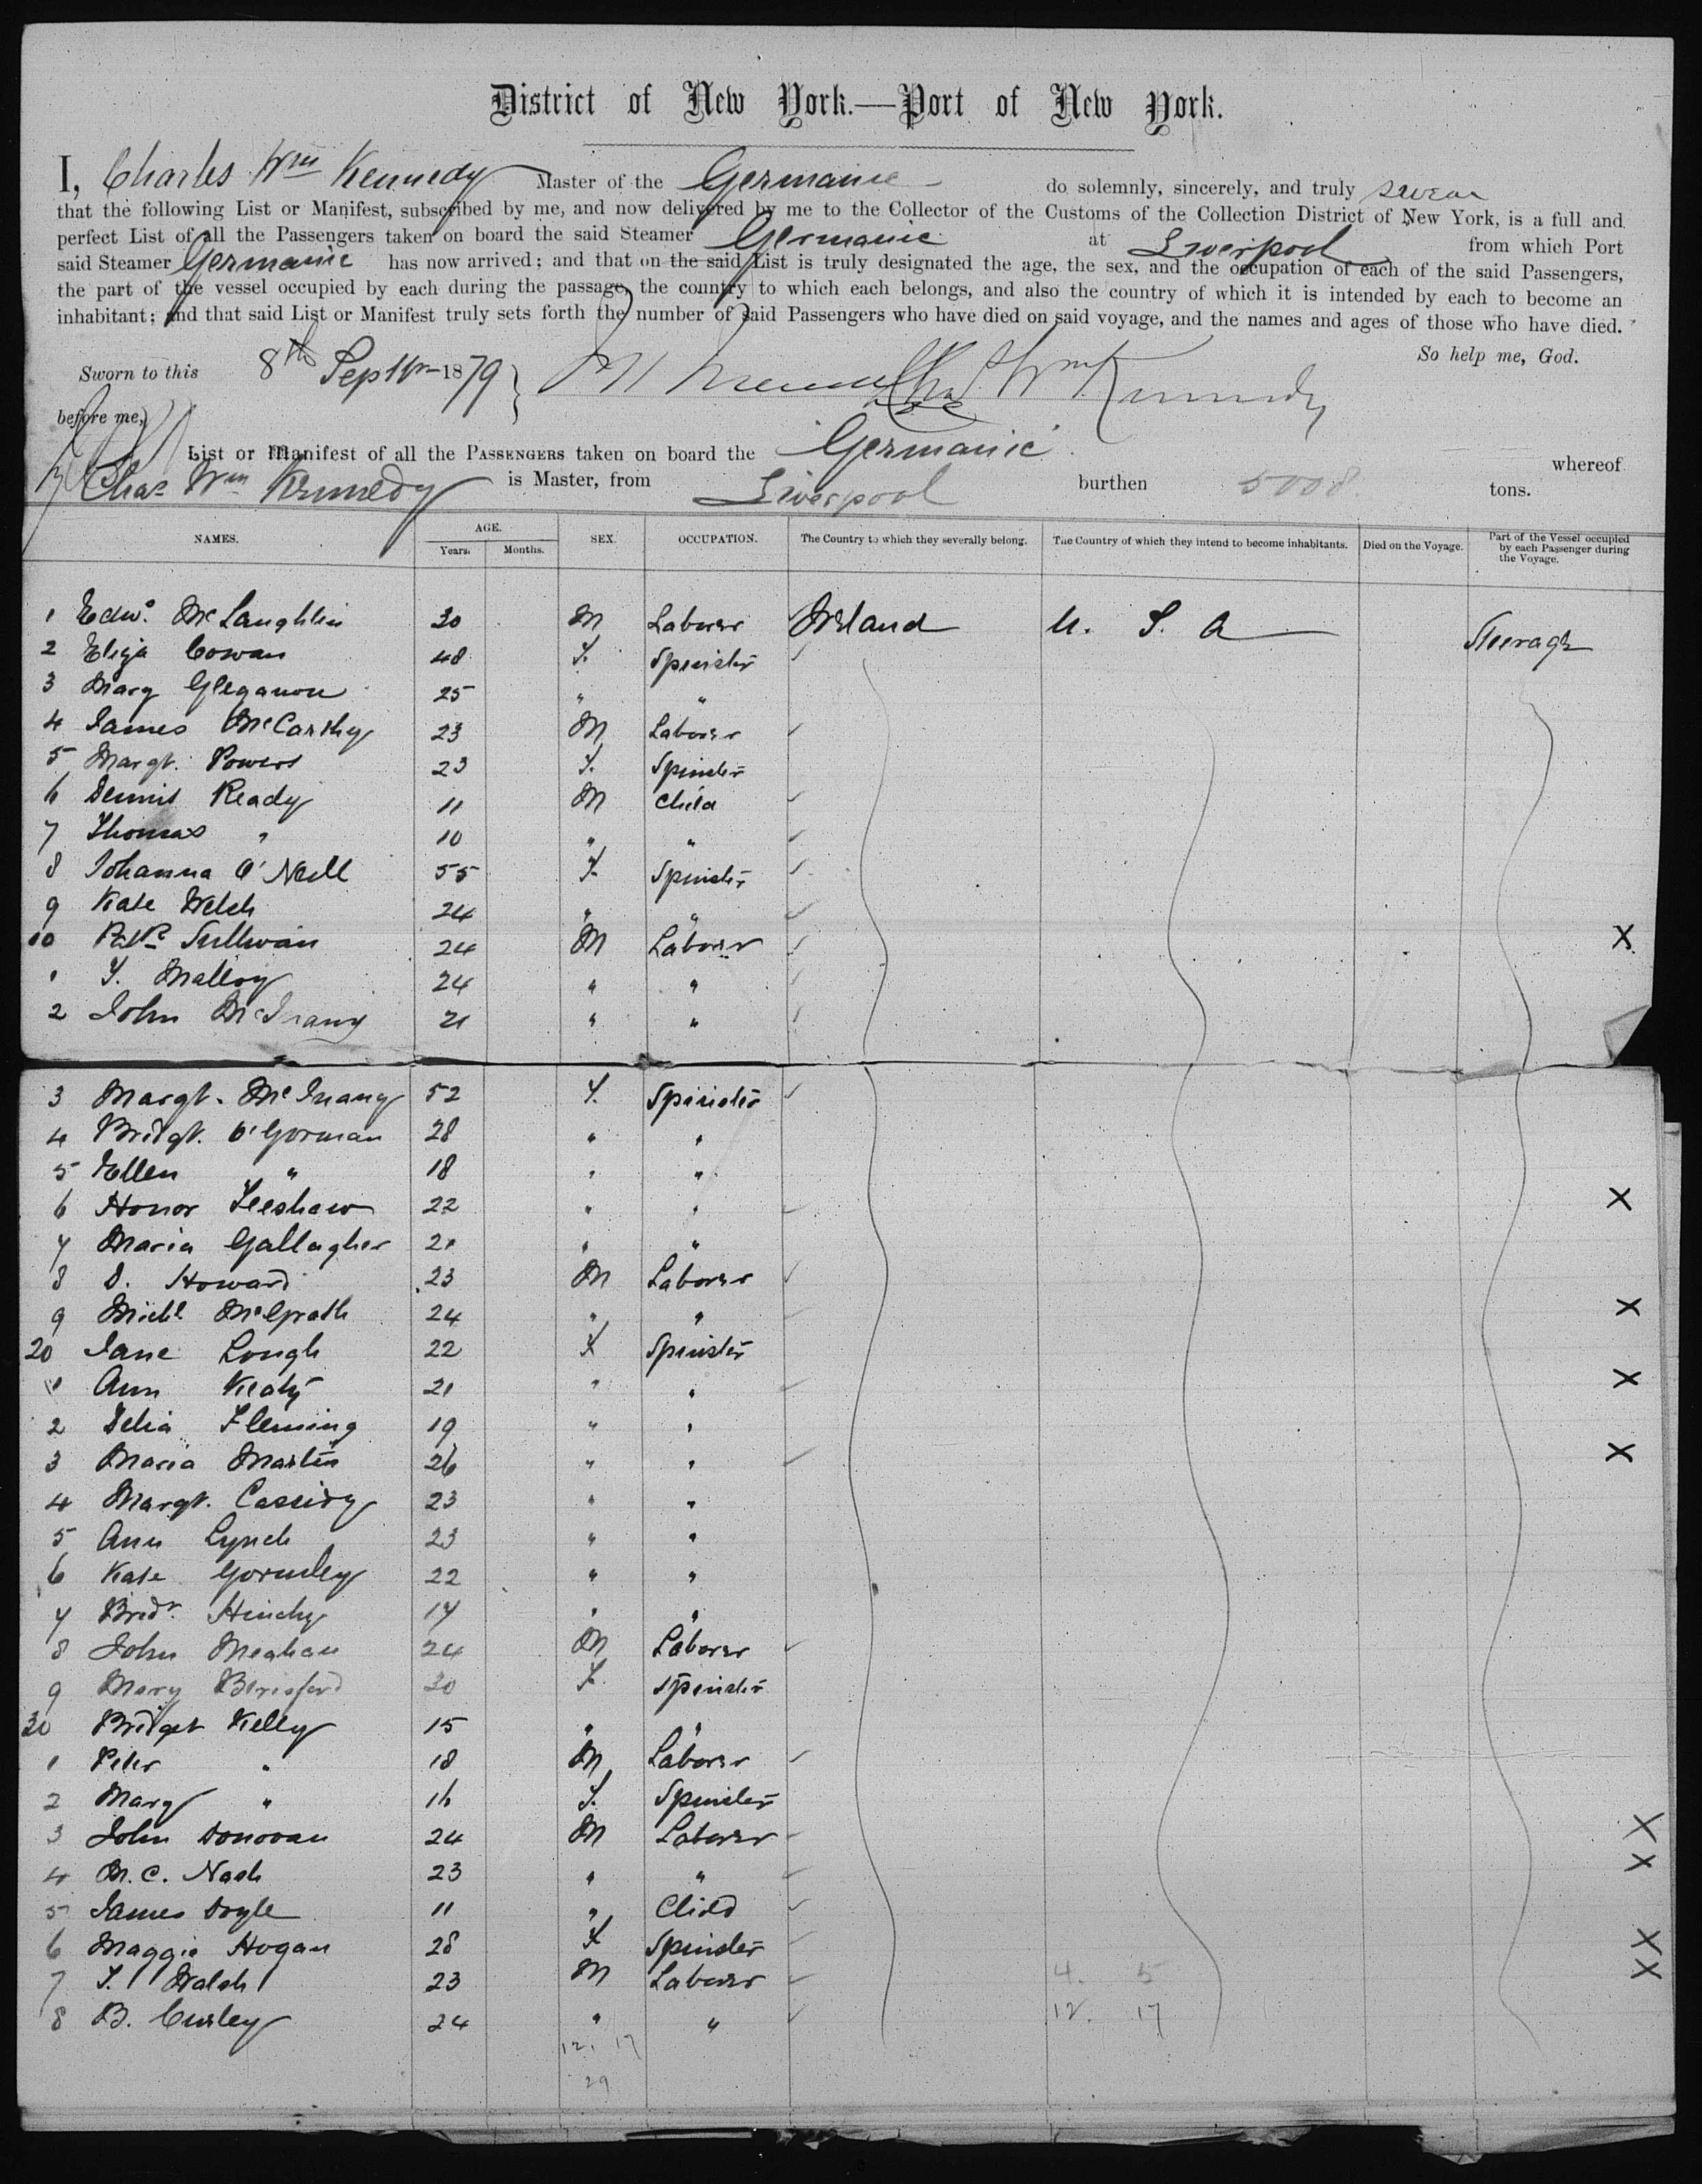 District of New York.—Port of New York.
I, Charles Wm Kennedy Master of the Germanic do solemnly, sincerely, and truly swear
that the following List or Manifest, subscribed by me, and now delivered by me to the Collector of the Customs of the Collection District of New York, is a full and
perfect List of all the Passengers taken on board the said Steamer Germanic at Liverpool from which Port
said Steamer Germanic has now arrived; and that on the said List is truly designated the age, the sex, and the occupation of each of the said Passengers,
the part of the vessel occupied by each during the passage, the country to which each belongs, and also the country of which it is intended by each to become an
inhabitant; and that said List or Manifest truly sets forth the number of said Passengers who have died on said voyage, and the names and ages of those who have died.
So help me, God.
Sworn to this 8th Septm 1879 Chas Wm Kennedy
before me,
List or Manifest of all the PASSENGERS taken on board the Germanic whereof
Chas Wm Kennedy is Master, from Liverpool burthen 5008 tons.
NAMES. AGE. Years. Months. SEX. OCCUPATION. The Country to which they severally belong. The Country of which they intend to become inhabitants. Died on the Voyage. Part of the Vessel occupied by each Passenger during the Voyage.
1 Edwd. McLaughlin 30 M Laborer Ireland U. S. A Steerage
2 Eliza Cowan 48 F. Spinster
3 Mary 25 " "
4 James McCarthy 23 M Laborer
5 Margt. Powers 23 F. Spinster
6 Dennis Ready 11 M Child
7 Thomas " 10 " "
8 Johanna O'Neill 55 F. Spinster
9 Kate Welch 24 " "
10 Patk Sullivan 24 M Laborer X
1 T. Malloy 24 " "
2 John 21 " "
3 Margt. 52 F. Spinster
4 Bridgt. O'Gorman 28 " "
5 Ellen " 18 " "
6 Honor 22 " " X
7 Maria Gallagher 21 " "
8 D. Howard 23 M Laborer
9 Michl McGrath 24 " " X
20 Jane Lough 22 F Spinster
1 Ann 21 " " X
2 Delia Fleming 19 " "
3 Maria Martin 26 " " X
4 Margt. Cassidy 23 " "
5 Ann Lynch 23 " "
6 Kate Gormley 22 " "
7 Bridt. Hinchy 17 " "
8 John Meahan 24 M Laborer
9 Mary Berisford 30 F. Spinster
30 Bridget Kelly 15 " "
1 Peter " 18 M Laborer
2 Mary " 16 F. Spinster
3 John Donovan 24 M Laborer XX
4 M. C. Nash 23 " " X
5 James Doyle 11 " Child
6 Maggie Hogan 28 F Spinster XX
7 T. Walsh 23 M Laborer 4. 5 XX
8 B. Curley 24 " " 12. 17
12. 17
29